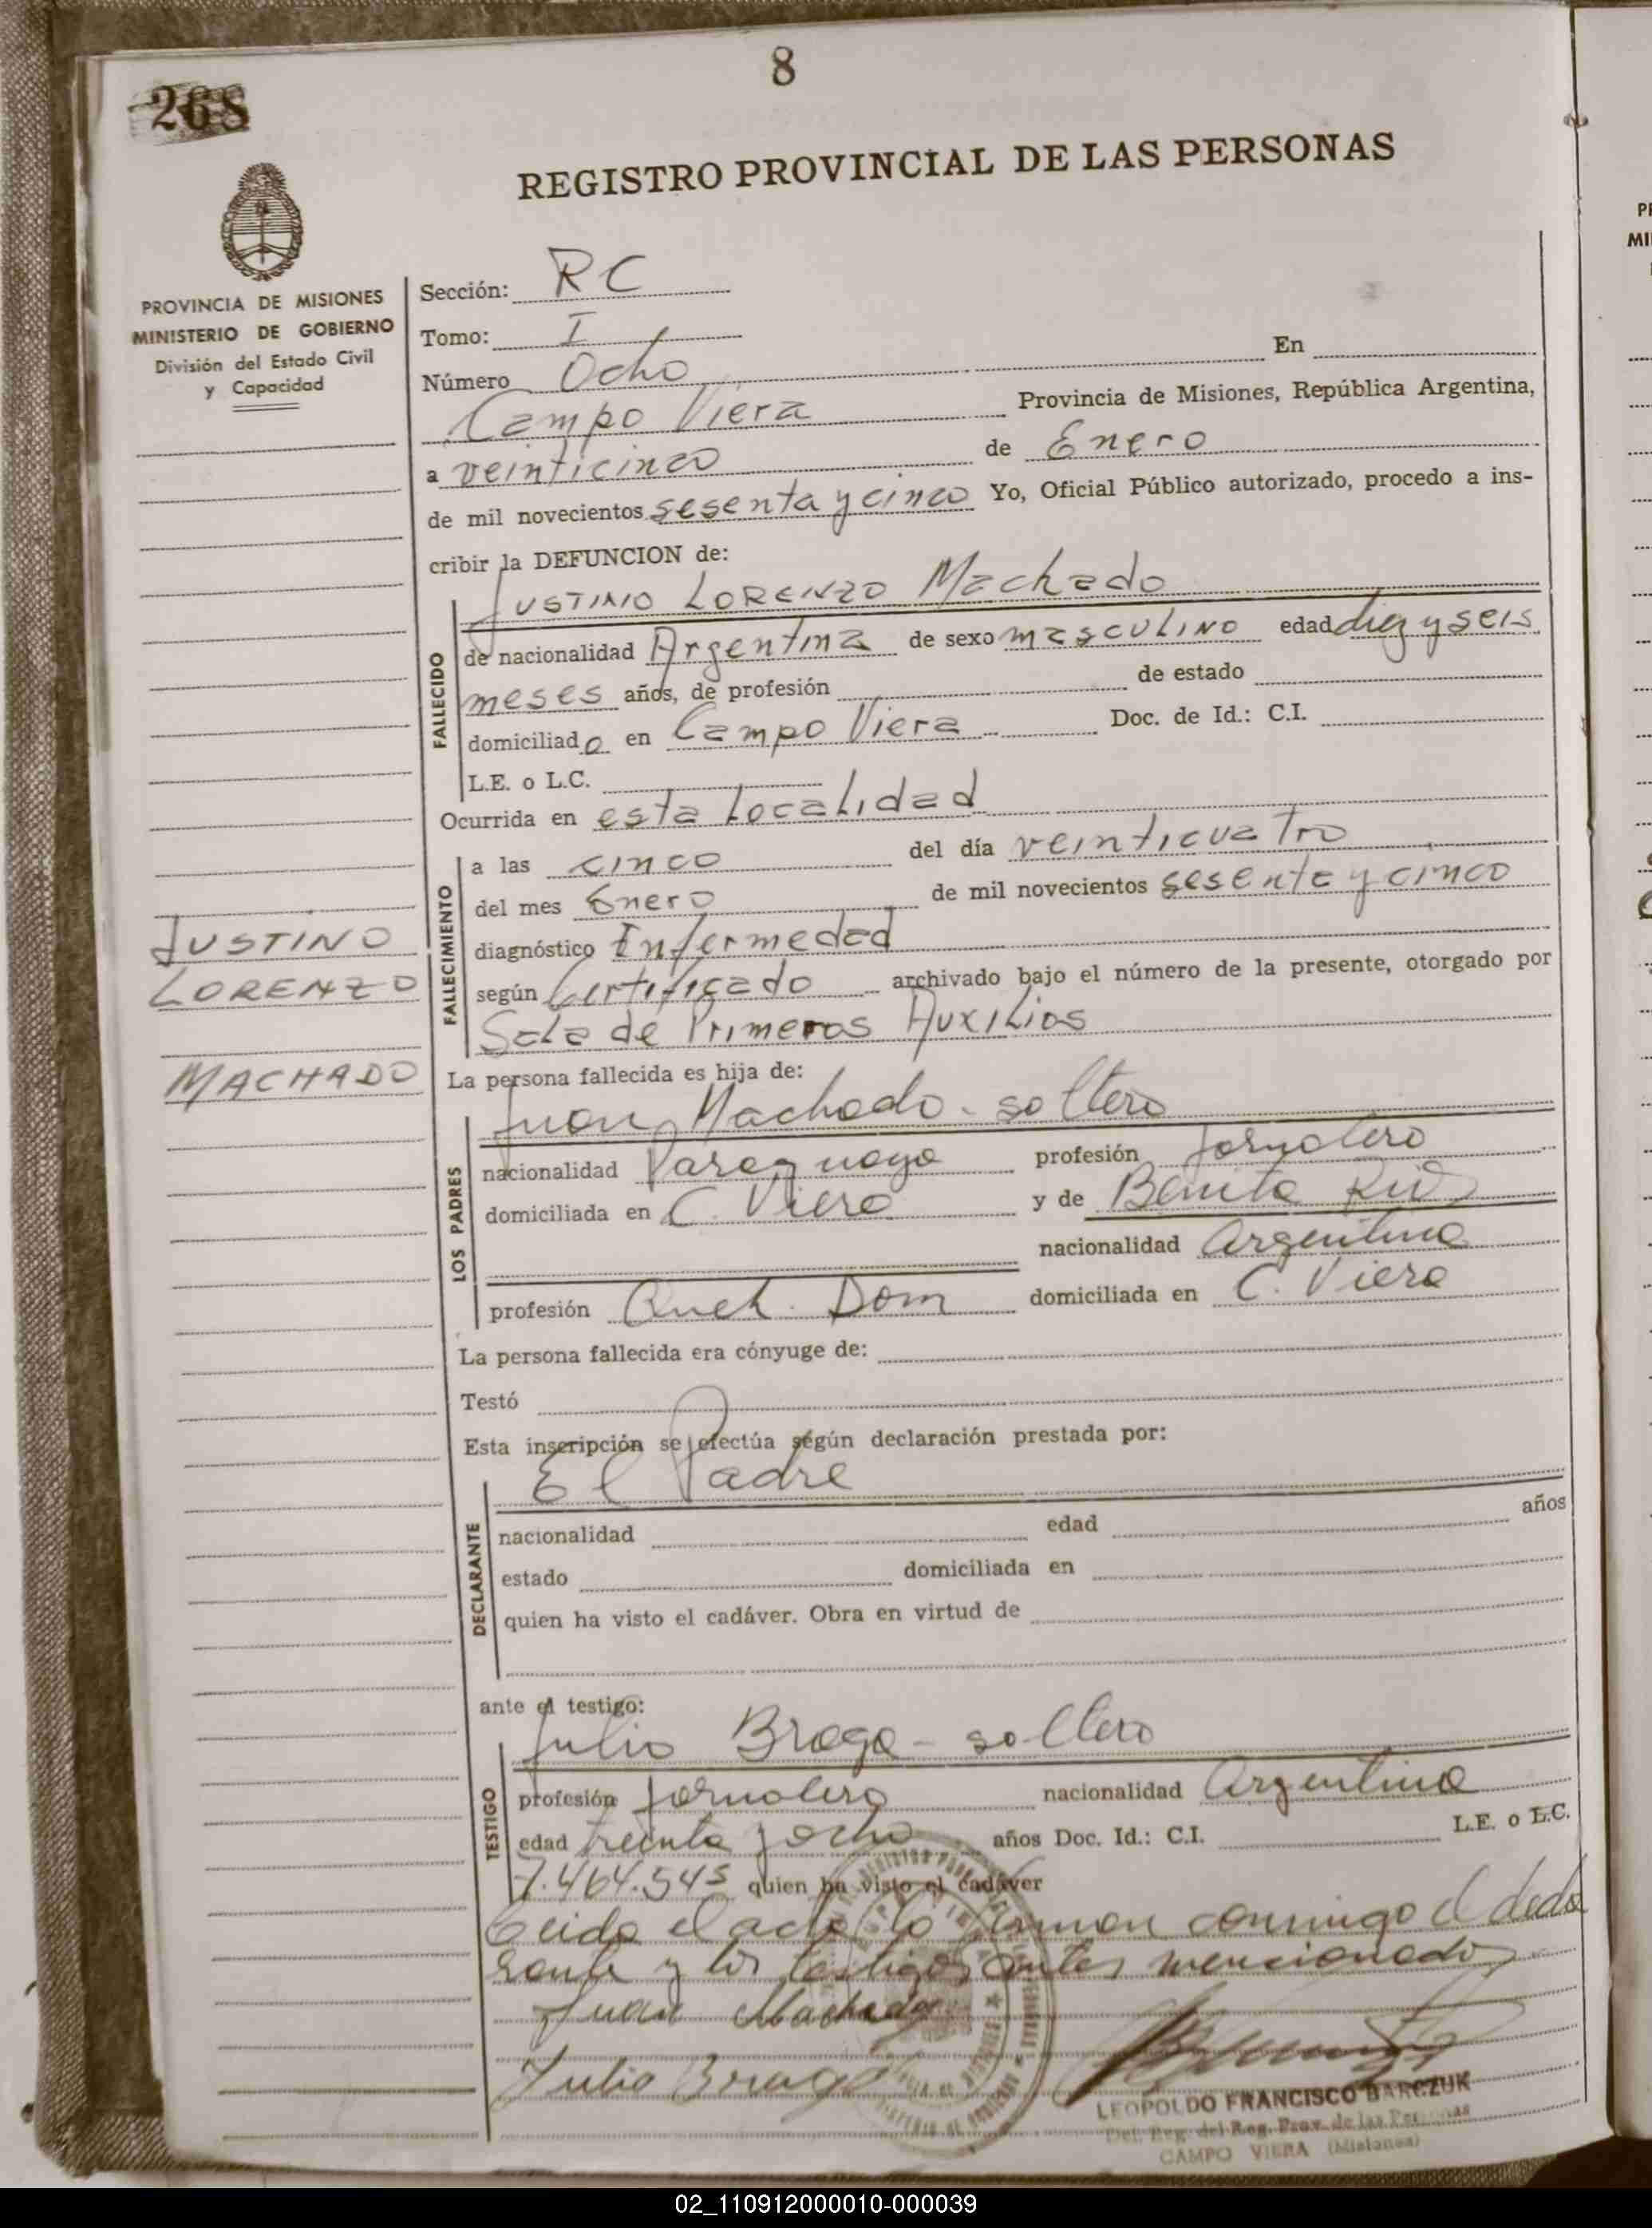 8
268
REGISTRO PROVINCIAL DE LAS PERSONAS
PROVINCIA DE MISIONES
MINISTERIO DE GOBIERNO
División del Estado Civil
y Capacidad
Sección: RC
Tomo: I
Número Ocho En
Campo Viera Provincia de Misiones, República Argentina,
a veinticinco de Enero
de mil novecientos sesenta y cinco Yo, Oficial Público autorizado, procedo a ins-
cribir la DEFUNCION de:
JUSTINO LORENZO Machado
FALLECIDO
de nacionalidad Argentina de sexo masculino edad diez y seis
meses años, de profesión de estado
domiciliado en Campo Viera Doc. de Id.: C.I.
L.E. o L.C.
Ocurrida en esta Localidad
FALLECIMIENTO
a las cinco del día veinticuatro
del mes Enero de mil novecientos sesenta y cinco
diagnóstico Enfermedad
según Certificado archivado bajo el número de la presente, otorgado por
Sala de Primeros Auxilios
JUSTINO
LORENZO
MACHADO
La persona fallecida es hija de:
Juan Machado - soltero
LOS PADRES
nacionalidad Paraguaya profesión Jornalero
domiciliada en C. Viera y de Benita
nacionalidad Argentina
profesión Queh. Dom domiciliada en C. Viera
La persona fallecida era cónyuge de:
Testó
Esta inscripción se efectúa según declaración prestada por:
El Padre
DECLARANTE
nacionalidad edad años
estado domiciliada en
quien ha visto el cadáver. Obra en virtud de
ante el testigo:
Julio Braga - soltero
TESTIGO
profesión Jornalero nacionalidad Argentina
edad treinta y ocho años Doc. Id.: C.I. L.E. o L.C.
7.464.545 quien ha visto el cadáver
Leida el acta la firman conmigo el decla
rante y los testigos antes mencionados
Juan Machado
Julio Braga
LEOPOLDO FRANCISCO BARCZUK
Del. Reg. del Reg. Prov. de las Personas
CAMPO VIERA (Misiones)
02_110912000010-000039